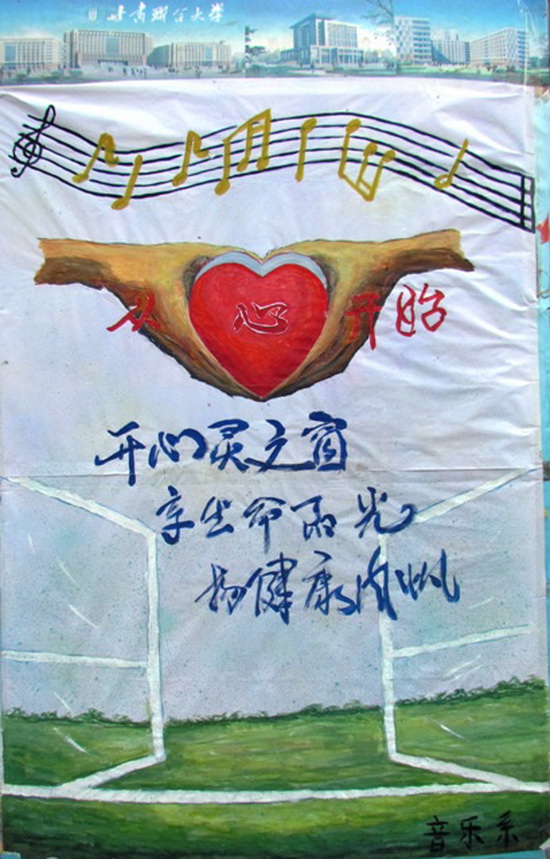 甘肃联合大学
从心开始
开心灵之窗
享生命阳光
扬健康风帆
音乐系